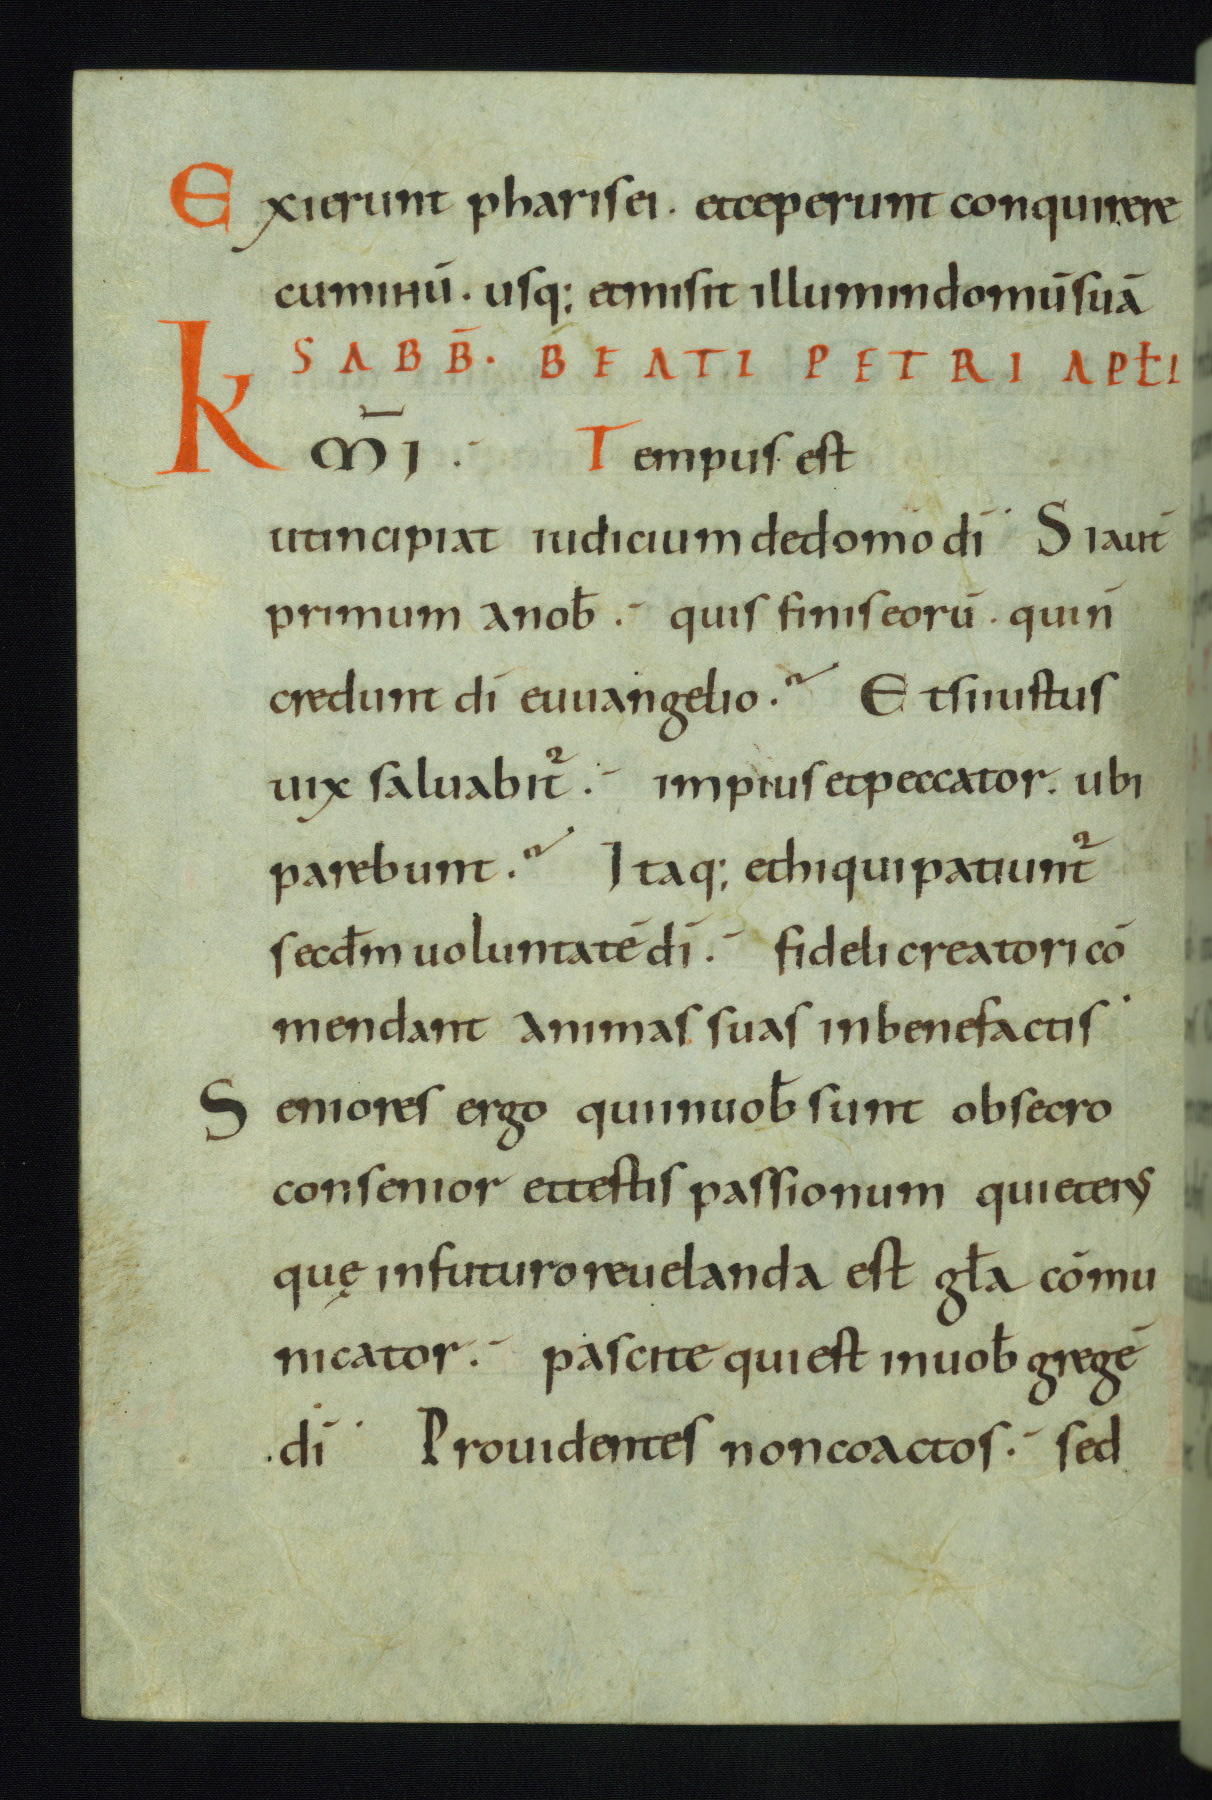 Exierunt pharisei. etceperunt conquirere
cumihū. usq; etmisit illumindomū suā
SABB̄. BEATI PETRI APłI
K m̄i. Tempus est
utincipiat iudicium dedomo dī Siaut̄
primum anob̄. quis finiseorū. quin̄
credunt dī euuangelio. Etsiiustus
uix saluabit᷑. impiusetpeccator. ubi
parebunt. Itaq; ethiquipatiunt᷑
secdm̄ uoluntatē dī. fideli creatori cō
mendant animas suas inbenefactis
Seniores ergo quiinuob̄ sunt obsecro
consenior ettestis passionum quieteiꝰ
quę infuturo reuelanda est gła cōmu
nicator. pascite quiest inuob̄ gregē
dī Prouidentes noncoactos. sed